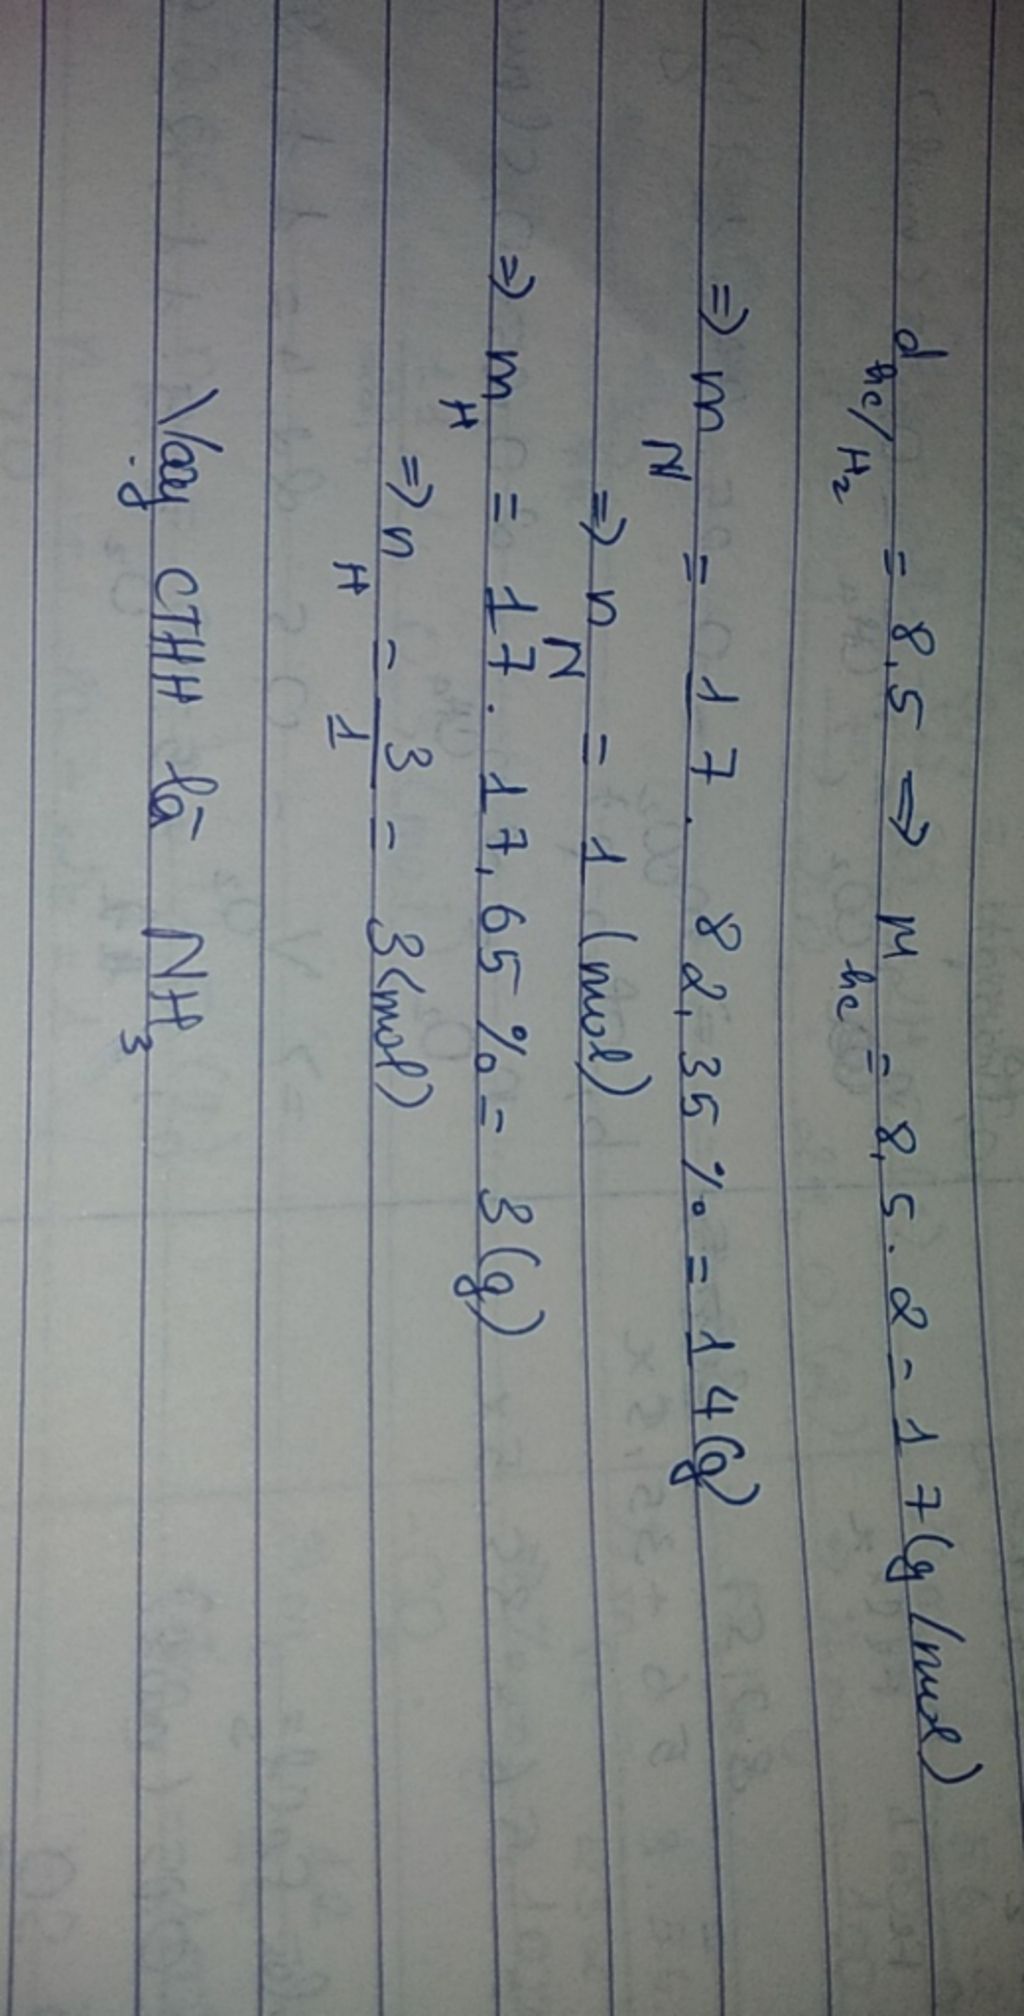 d hc/H₂ = 8,5 => M hc = 8,5.2 = 17(g/mol)
=> m N = 17. 82,35% = 14(g)
=> n N = 1 (mol)
=> m H = 17. 17,65% = 3(g)
=> n H = 3/1 = 3(mol)
Vậy CTHH là NH₃